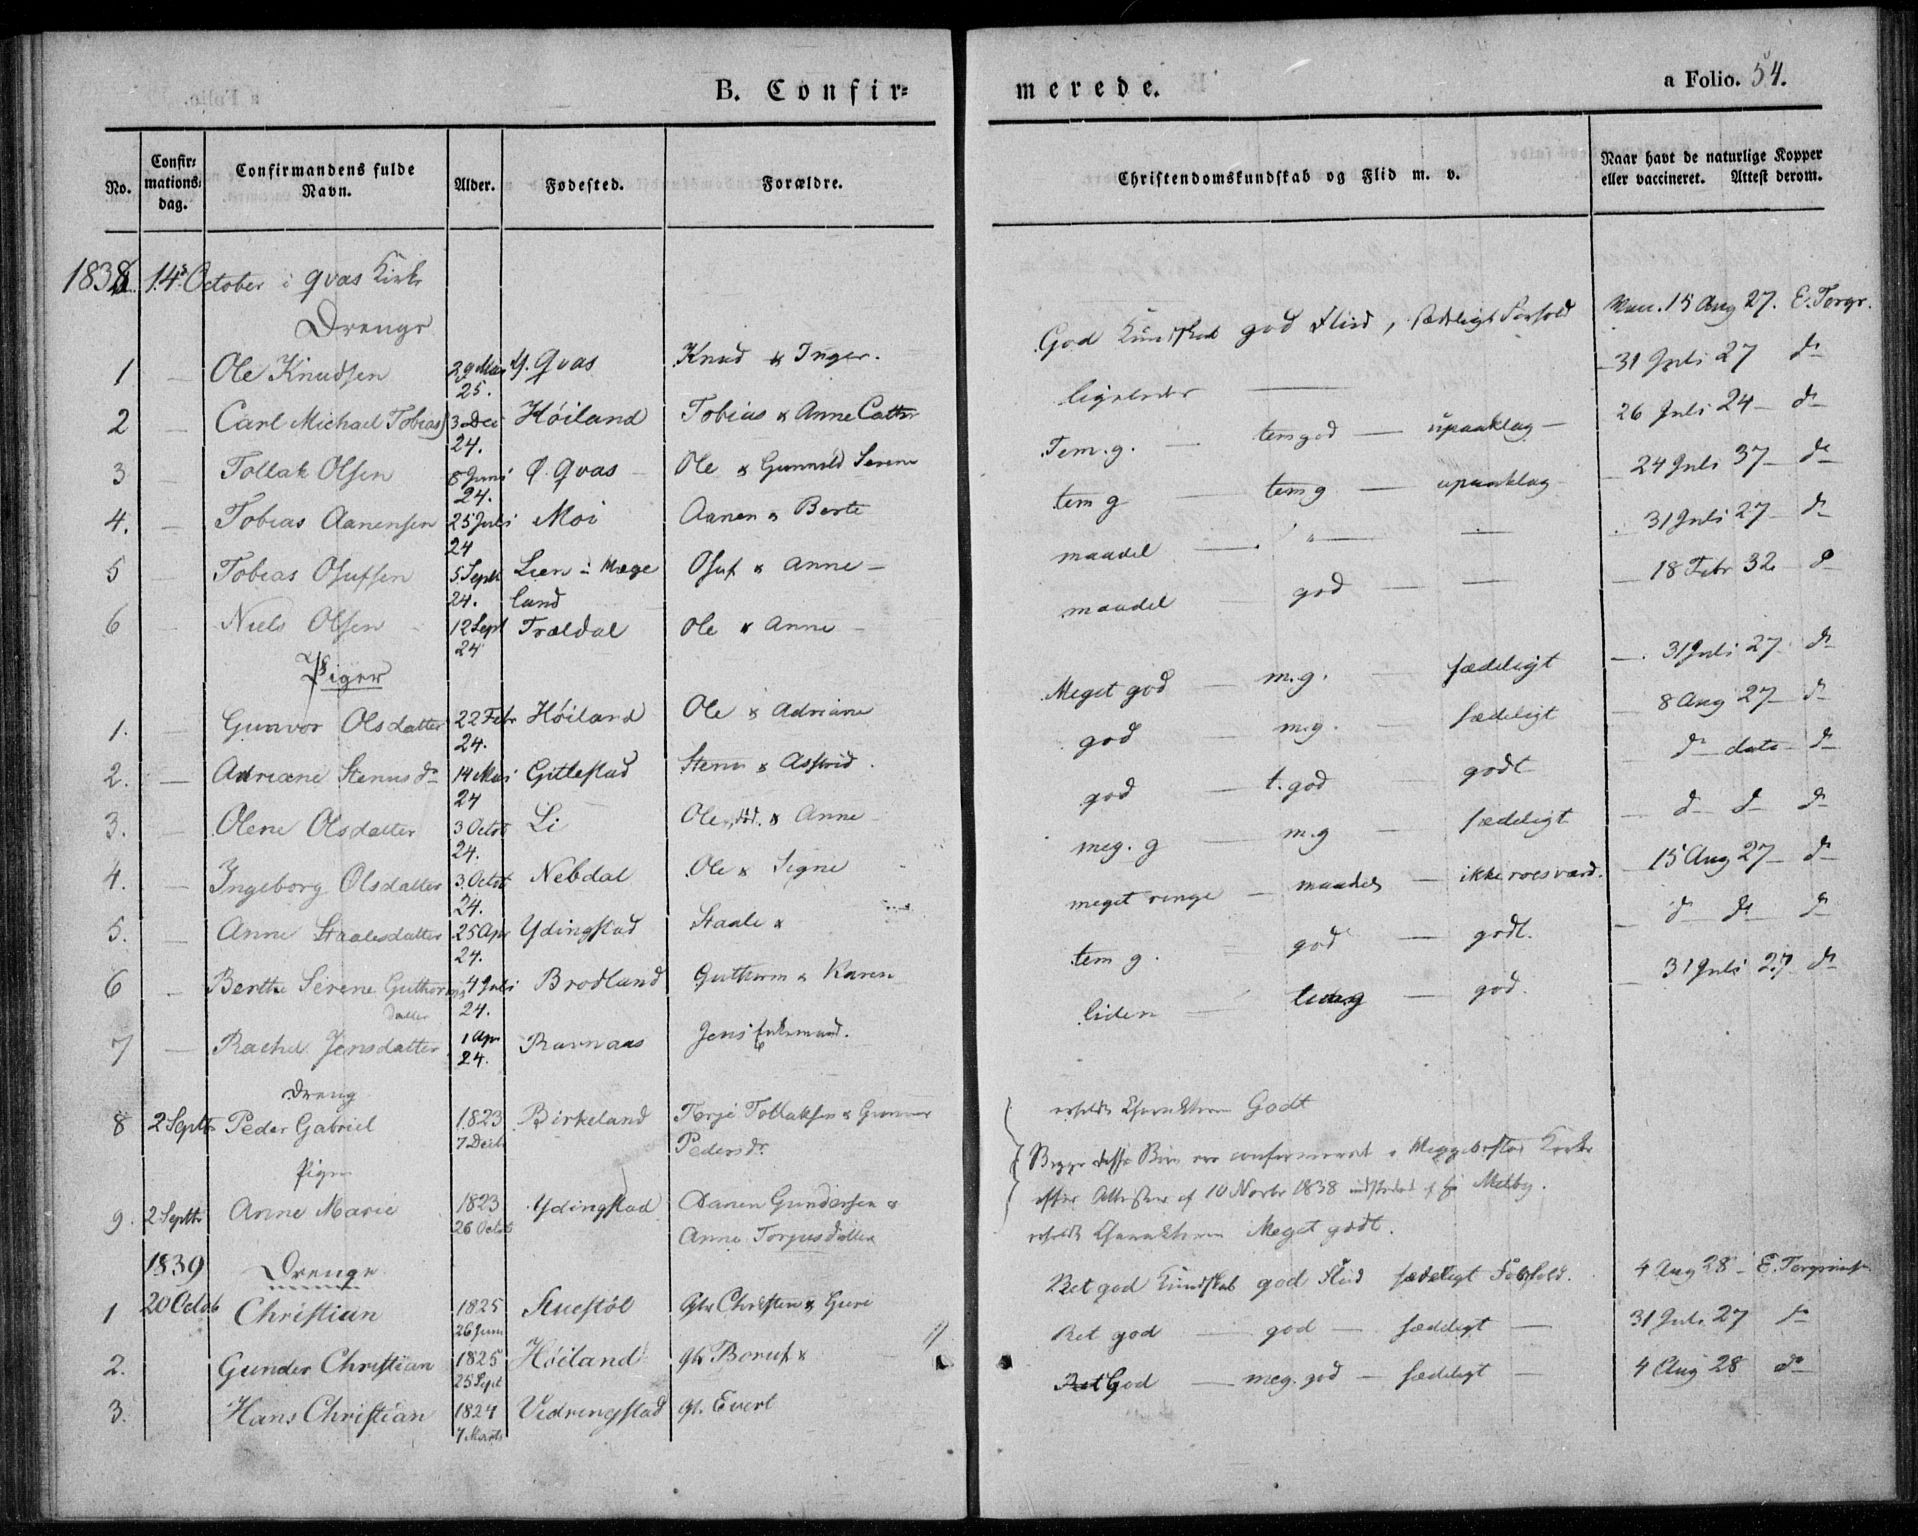 B. Confir=
merede.
a Folio. 54.
No.
Confir=
mations=
dag.
Confirmandens fulde
Navn.
Alder.
Fødested.
Forældre.
Christendomskundskab og Flid m. v.
Naar havt de naturlige Kopper
eller vaccineret. Attest derom.
1838 14 October i Qvas Kirke
Drenge
1 — Ole Knudsen 29 Mai 25. Y. Qvas Knud & Inger. God Kundskab god Flid, sædeligt Forhold Vac. 15 Aug 27. E. Torgr.
2 — Carl Michael Tobias 3 Dec 24. Høiland Tobias & Anne Cathr ligeledes — 31 Juli 27 do
3 — Tollak Olsen 8 Juni 24. Ø. Qvas — Ole & Gunnild Serene Tem. g. — temgod — upaaklag — 26 Juli 24 — do
4. — Tobias Aanensen 25 Juli 24 Moi Aanen & Berte tem g — tem g — upaaklag — 24 Juli 37 — do
5 — Tobias Osufsen 5 Septb 24. Lien i Mæge land Osuf & Anne — maadel — " — — 31 Juli 27 — do
6 — Niels Olsen — 12 Sept 24 Trældal Ole & Anne — maadel — god — — 18 Febr 32 do
Piger
1. — Gunvor Olsdatter 22 Febr 24. Høiland Ole & Adriane Meget god — m.g. — sædeligt — 31 Juli 27 do
2. — Adriane Stenus dr 14 Mai 24 Gitlestad Stenu & Assrid. god — m.g. — sædeligt — 8 Aug 27 — do
3. — Olene Olsdatter 3 Octob 24. Li Ole, død. & Anne — god — t. god — godt do dato — do
4. — Ingeborg Olsdatter 3 Octob 24. Nebdal Ole & Signe meg. g — m.g — sædeligt — do do do
5. — Anne Staalesdatter 25 Apr 24. Ydingstad Staale & meget ringe — maadel — ikke roesværd. — 15 Aug 27 — do
6 — Berthe Serene Guthorms datter 4 Juli 24. Brodland Guthorm & Karen tem g. — god — godt. — do do do
7 — Rachel Jensdatter 1 Apr 24. Ravnaas Jens Enkemand. liden — — god. — 31 Juli 27 — do
Dreng
8 2 Septbr Peder Gabriel 1823 7 Decb Birkeland Torje Tollaksen & Gunvor
Peders dr. erholdt Charakteren Godt
Pige
Begge disse Børn ere confirmeret i Kirke
efter Attester af 10 Novbr 1838 Meltby.
9. 2 Septbr Anne Marie 1823 26 Octob Ydingstad Aanen Gundersen &
Anne Torjusdatter erholdt Charakteren Meget godt.
1839 Drenge
1 20 Octob Christian 1825 26 Juni Stuestøl Christen & Guri Ret god Kundskab god Flid sædeligt Forhold. 4 Aug 28 — E. Torgrims
2. Gunder Christian 1825 25 Sept Høiland Boruf & Ret god — god — sædeligt — 31 Juli 27 do
3. Hans Christian 1824 7 Marts Vidringstad Evert God — meg. god — sædeligt — 4 Aug 28 do